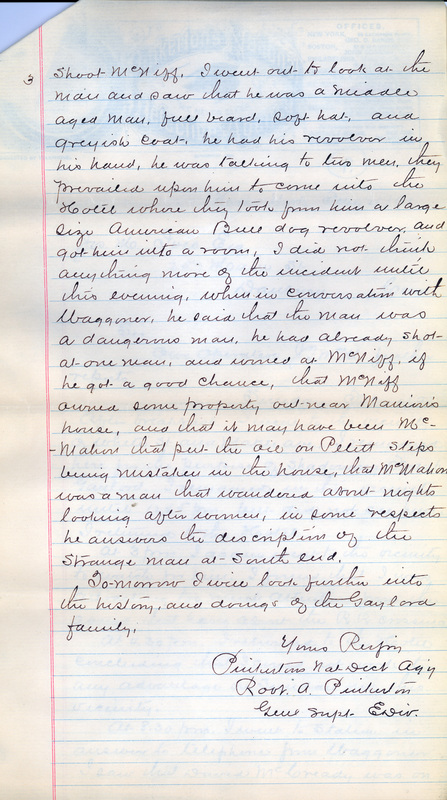 3
Shoot McNiff. I went out to look at the
man and saw that he was a middle
aged man, full beard, soft hat, and
greyish coat, he had his revolver in
his hand, he was talking to two men, they
prevailed upon him to come into the
Hotel where they took from him a large
size American Bull dog revolver, and
got him into a room, I did not think
anything more of the incident until
this evening, when in conversation with
Waggoner, he said that the man was
a dangerous man, he had already shot
at one man, and at McNiff, if
he got a good chance, that McNiff
owned some property out near
house, and that it may have been Mc-
-Mahon that put the oil on Pelitt steps
being mistaken in the house, that McMahon
was a man that wandered about nights
looking after women, in some respects
he answers the description of the
strange man at South end.
To-morrow I will look further into
the history, and doings of the Gaylord
family.
Yours Respy
Pinkertons Nat Dect Agy
Robt. A. Pinkerton
Genl Supt. E Div.